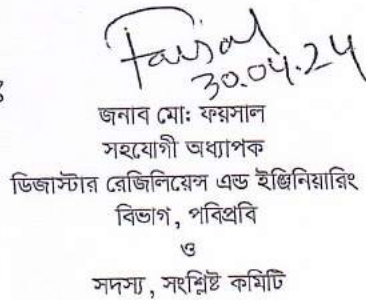 Faisal
30.04.24
জনাব মো: ফয়সাল
সহযোগী অধ্যাপক
ডিজাস্টার রেজিলিয়েন্স এন্ড ইঞ্জিনিয়ারিং
বিভাগ, পবিপ্রবি
ও
সদস্য, সংশ্লিষ্ট কমিটি